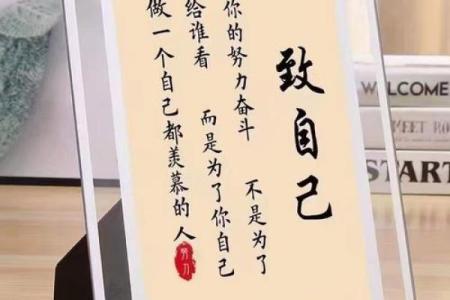 致自己
你的努力奋斗
不是为了
给谁看
而是为了你自己
做一个自己都羡慕的人
努力
WELCOME
START